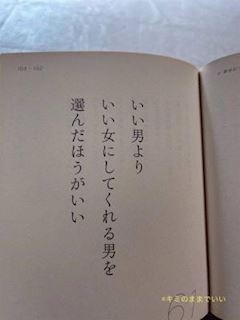 いい男より
いい女にしてくれる男を
選んだほうがいい
61
©キミのままでいい